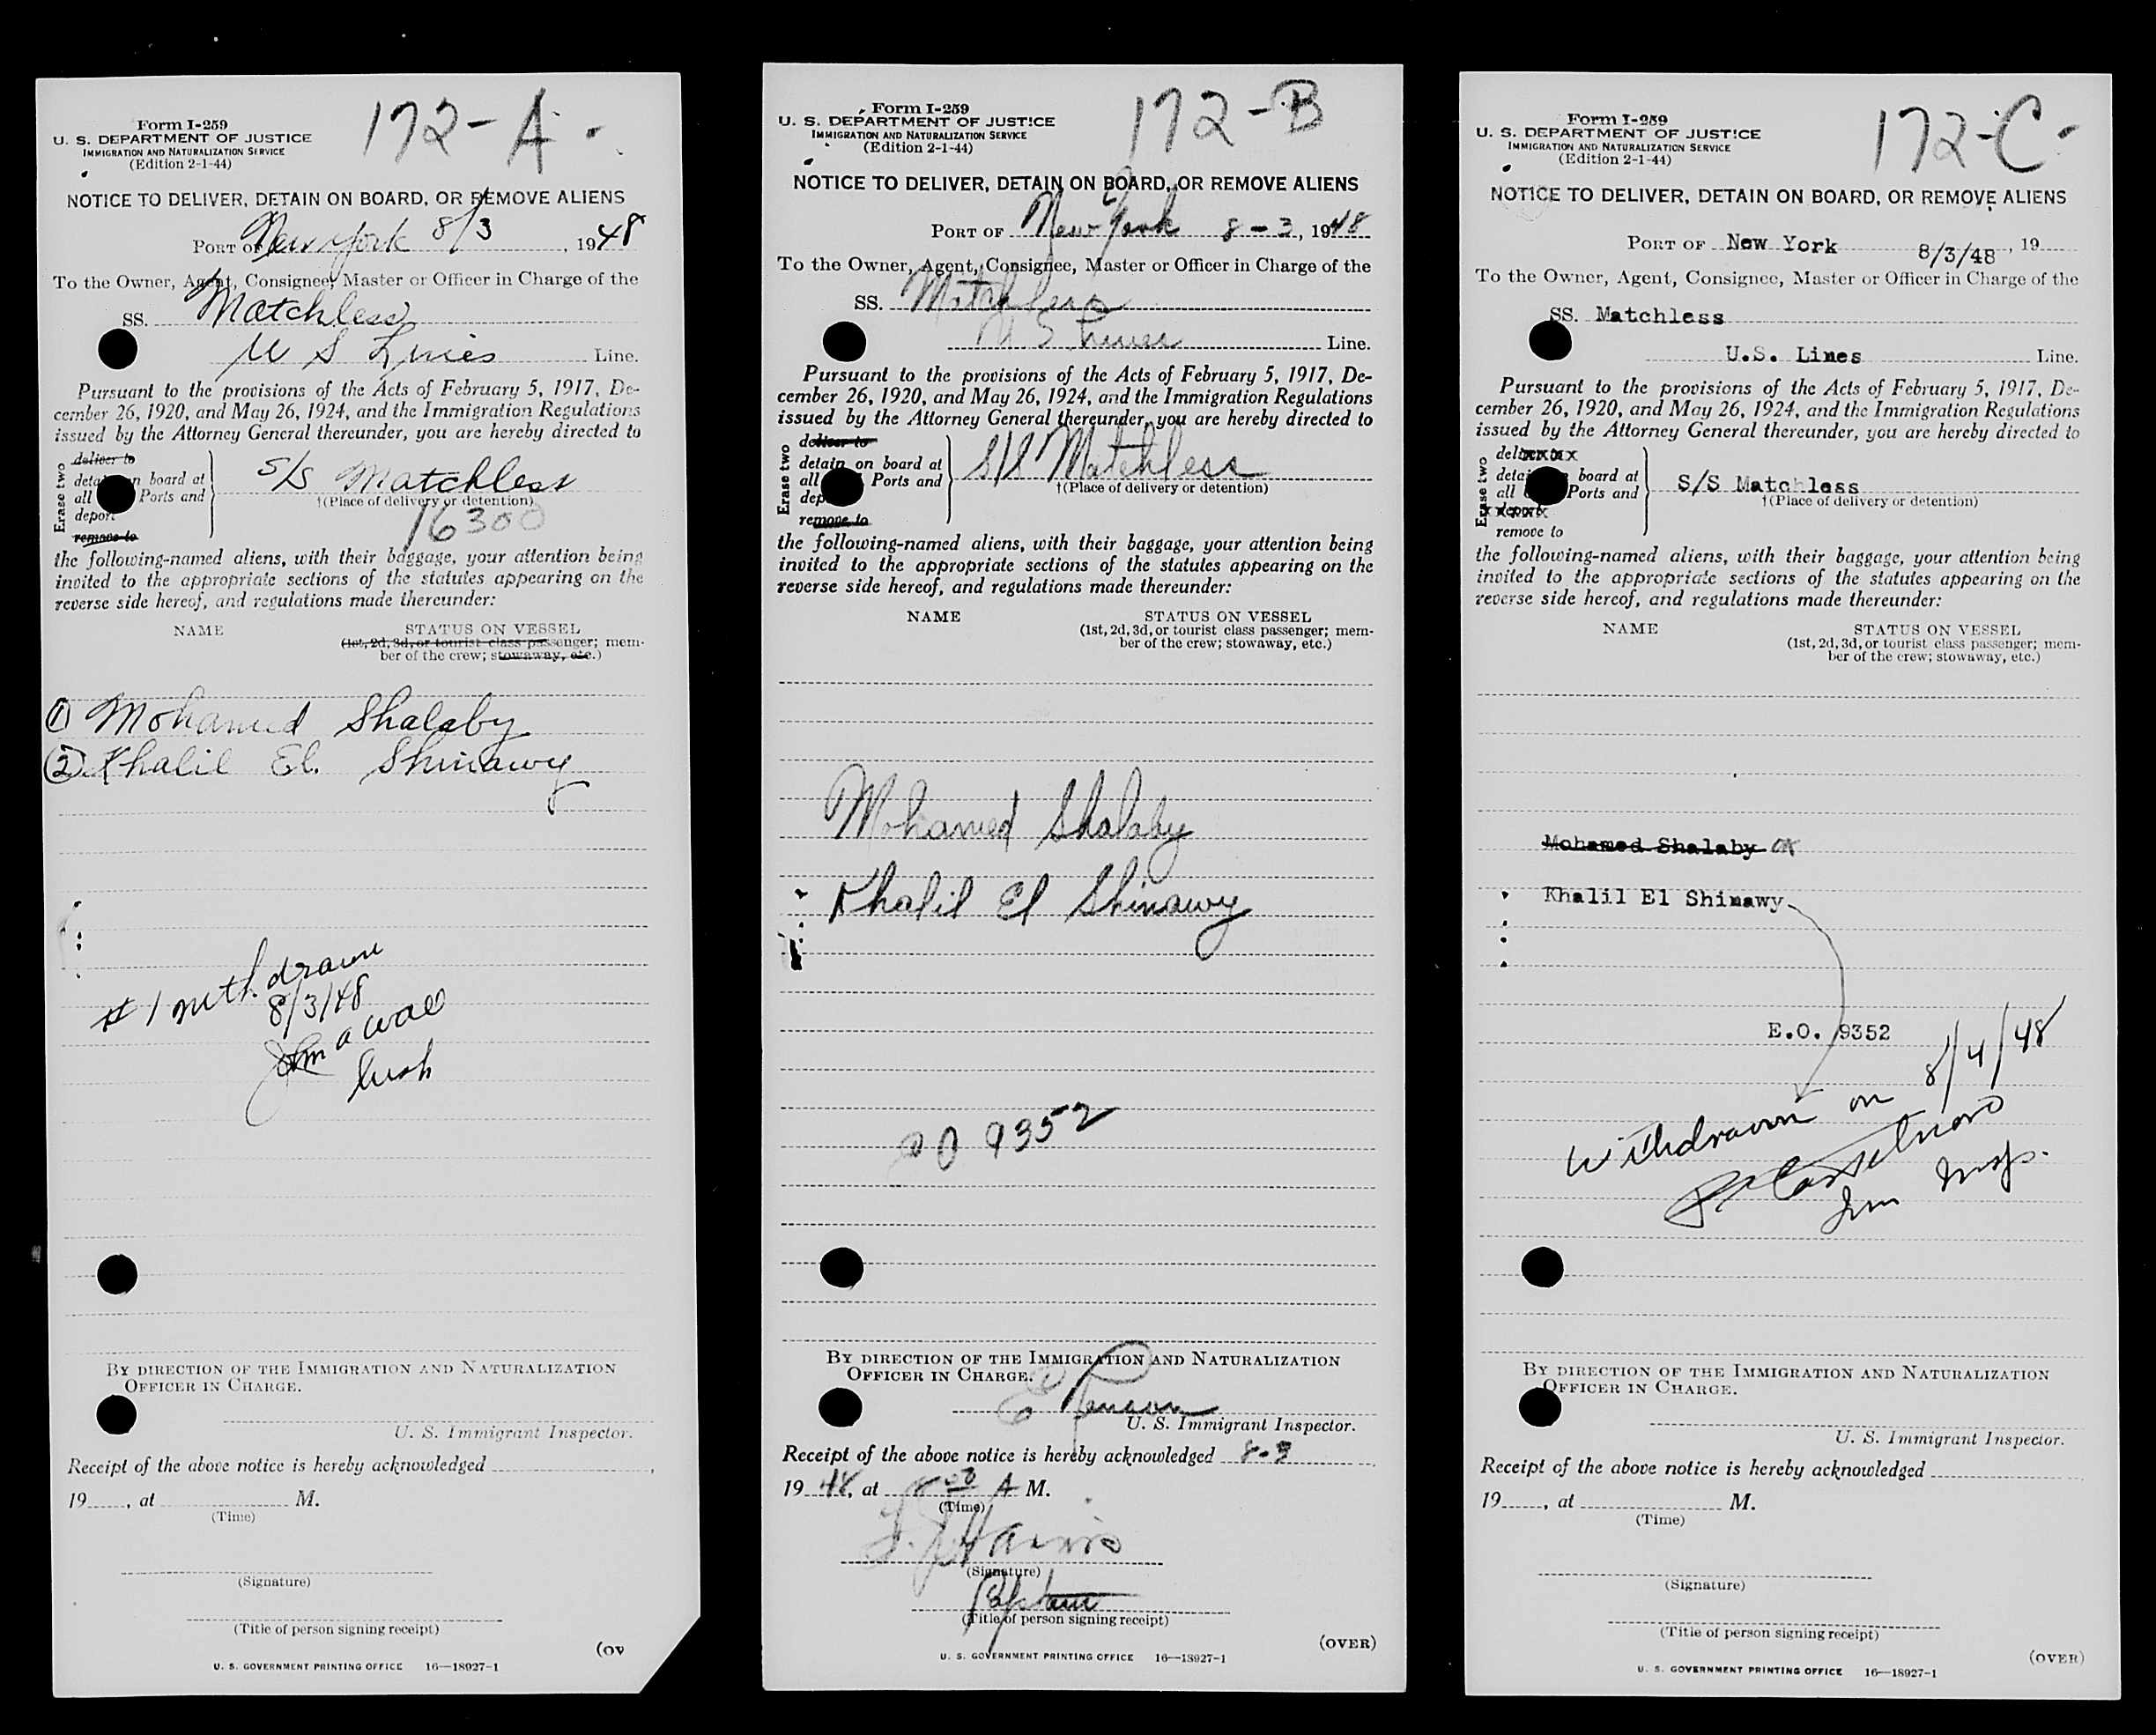 172-A
Form I-259
U. S. DEPARTMENT OF JUSTICE
IMMIGRATION AND NATURALIZATION SERVICE
(Edition 2-1-44)
NOTICE TO DELIVER, DETAIN ON BOARD, OR REMOVE ALIENS
PORT OF New York 8/3, 1948
To the Owner, Agent, Consignee, Master or Officer in Charge of the
SS. Matchless
U S Lines Line.
Pursuant to the provisions of the Acts of February 5, 1917, De-
cember 26, 1920, and May 26, 1924, and the Immigration Regulations
issued by the Attorney General thereunder, you are hereby directed to
Erase two
deliver to
detain on board at
all Ports and
deport
remove to
S/S Matchless
†(Place of delivery or detention)
16300
the following-named aliens, with their baggage, your attention being
invited to the appropriate sections of the statutes appearing on the
reverse side hereof, and regulations made thereunder:
NAME STATUS ON VESSEL
(1st, 2d, 3d, or tourist class passenger; mem-
ber of the crew; stowaway, etc.)
① Mohamed Shalaby
② Khalil El. Shinawy
#1 withdrawn
8/3/48
By DIRECTION OF THE IMMIGRATION AND NATURALIZATION
OFFICER IN CHARGE.
U. S. Immigrant Inspector.
Receipt of the above notice is hereby acknowledged
19, at M.
(Time)
(Signature)
(Title of person signing receipt)
(OV
U. S. GOVERNMENT PRINTING OFFICE 16—18927-1
172-B
Form I-259
U. S. DEPARTMENT OF JUSTICE
IMMIGRATION AND NATURALIZATION SERVICE
(Edition 2-1-44)
NOTICE TO DELIVER, DETAIN ON BOARD, OR REMOVE ALIENS
PORT OF New York 8-3, 1948
To the Owner, Agent, Consignee, Master or Officer in Charge of the
SS. Matchless
U S Lines Line.
Pursuant to the provisions of the Acts of February 5, 1917, De-
cember 26, 1920, and May 26, 1924, and the Immigration Regulations
issued by the Attorney General thereunder, you are hereby directed to
Erase two
deliver to
detain on board at
all Ports and
dep
remove to
S/S Matchless
†(Place of delivery or detention)
the following-named aliens, with their baggage, your attention being
invited to the appropriate sections of the statutes appearing on the
reverse side hereof, and regulations made thereunder:
NAME STATUS ON VESSEL
(1st, 2d, 3d, or tourist class passenger; mem-
ber of the crew; stowaway, etc.)
Mohamed Shalaby
Khalil El Shinawy
9352
By DIRECTION OF THE IMMIGRATION AND NATURALIZATION
OFFICER IN CHARGE.
U. S. Immigrant Inspector.
Receipt of the above notice is hereby acknowledged 8-3
1948, at 8 00 A M.
(Time)
Harris
(Signature)
Captain
(Title of person signing receipt)
(OVER)
U. S. GOVERNMENT PRINTING OFFICE 16—18927-1
172-C
Form I-259
U. S. DEPARTMENT OF JUSTICE
IMMIGRATION AND NATURALIZATION SERVICE
(Edition 2-1-44)
NOTICE TO DELIVER, DETAIN ON BOARD, OR REMOVE ALIENS
PORT OF New York 8/3/48, 19
To the Owner, Agent, Consignee, Master or Officer in Charge of the
SS. Matchless
U.S. Lines Line.
Pursuant to the provisions of the Acts of February 5, 1917, De-
cember 26, 1920, and May 26, 1924, and the Immigration Regulations
issued by the Attorney General thereunder, you are hereby directed to
Erase two
deliver xxxx
detain board at
all Ports and
deport
remove to
S/S Matchless
†(Place of delivery or detention)
the following-named aliens, with their baggage, your attention being
invited to the appropriate sections of the statutes appearing on the
reverse side hereof, and regulations made thereunder:
NAME STATUS ON VESSEL
(1st, 2d, 3d, or tourist class passenger; mem-
ber of the crew; stowaway, etc.)
Mohamed Shalaby
Khalil El Shinawy
E.O. 9352
Withdrawn on 8/4/48
Imm Insp.
By DIRECTION OF THE IMMIGRATION AND NATURALIZATION
OFFICER IN CHARGE.
U. S. Immigrant Inspector.
Receipt of the above notice is hereby acknowledged
19, at M.
(Time)
(Signature)
(Title of person signing receipt)
(OVER)
U. S. GOVERNMENT PRINTING OFFICE 16—18927-1